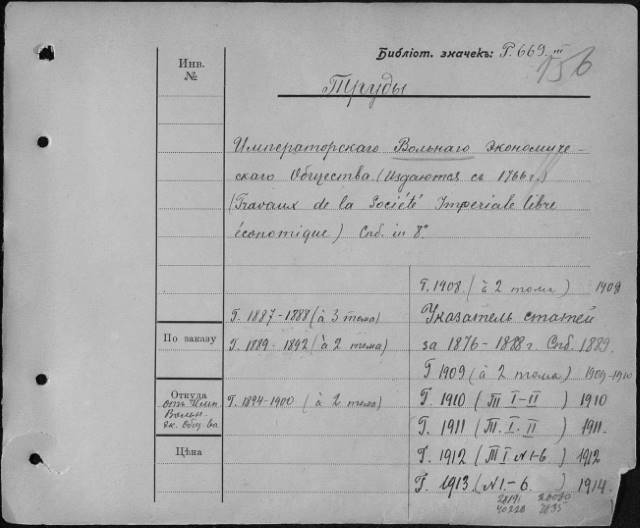 Библіот. значекъ: Р. 669. III
156
Инв.
№
Труды
Императорскаго Вольнаго Экономиче-
скаго Общества. (Издаются съ 1766 г.)
(Travaux de la Société Imperiale libre
économique) Спб. in 8°
Г. 1908. (à 2 тома) 1908
Г. 1887-1888 (à 3 тома)
Указатель статей
По заказу
Г. 1889-1892 (à 2 тома)
за 1876-1888 г. Спб. 1889.
Г 1909 (à 2 тома) 1909-1910
Откуда
отъ Имп.
Вольн.
эк. Общ-ва
Г. 1894-1900 (à 2 тома)
Г. 1910 (Т I-II) 1910
Г. 1911 (Т. I-II) 1911.
Цѣна
Г. 1912 (Т I № 1-6) 1912
Г. 1913 (№ 1.-6.) 1914.